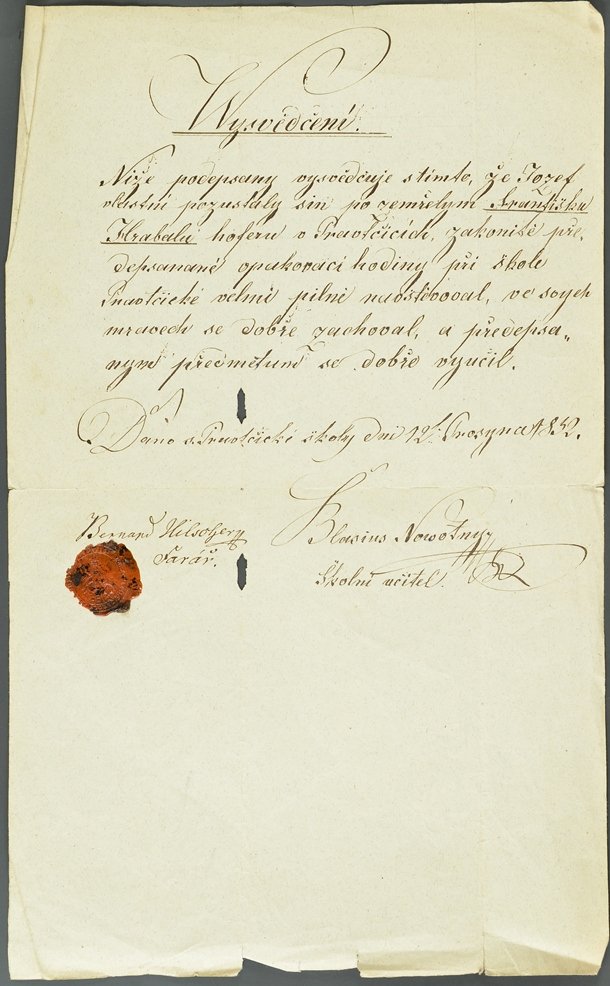 Wysvědčení.
Níže podepsany vysvědčuje stimto, že Jozef
vlastní pozustalý sin po zemřelým Františku
Hrabalu hoferu v Pravtčicích, zákonitě pře-
depsanané opakovací hodiny při škole
Pravtčické velmi pilně navštěvoval, ve svych
mravech se dobře zachoval, a předepsa„
nym předmětum se dobře vyučil.
Dáno v Pravtčické školy dni 12. Prosyna 1852.
Bernard
Farář.
Blasius Nowotny
Školní učitel.